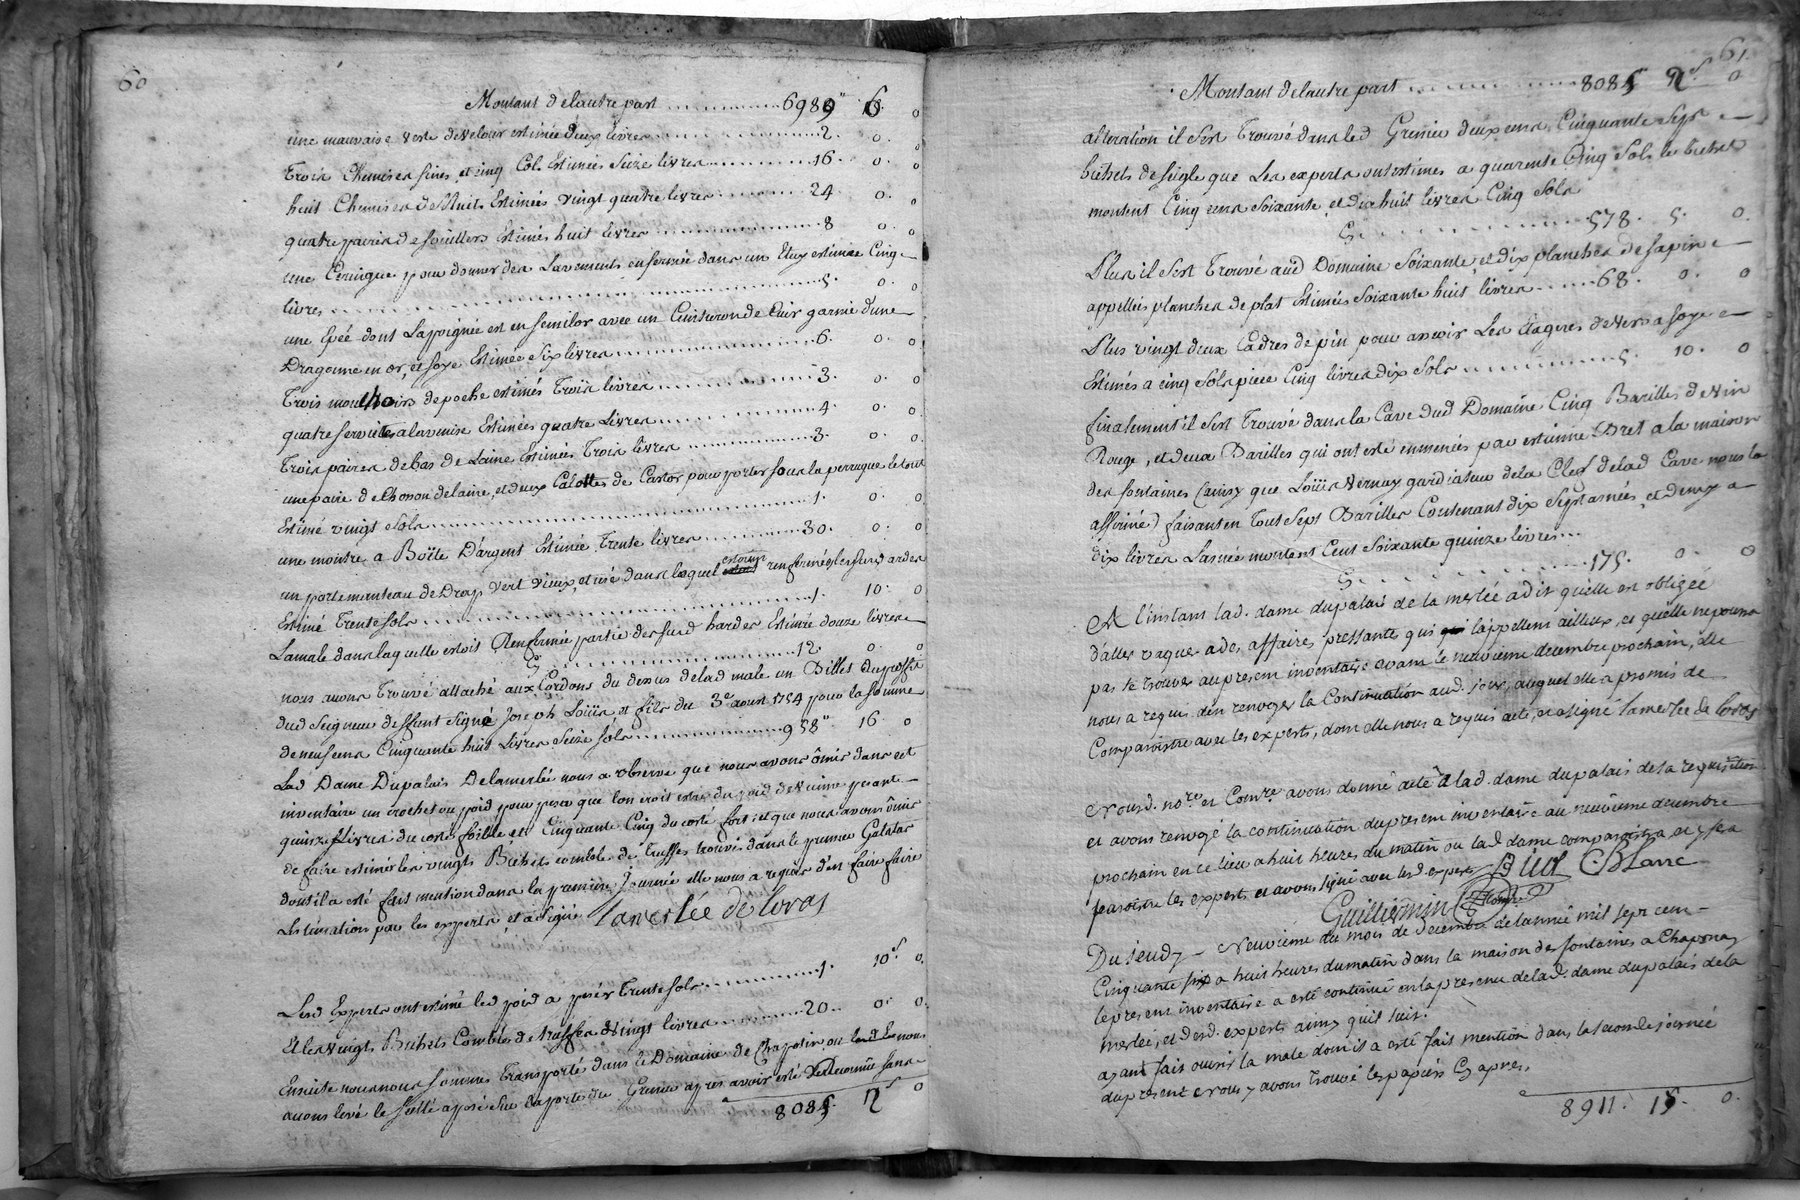 60
Montant de lautre part .......... 6989" 6. 0
une mauvaise veste de velour estimée deux livres .......... 2. 0 0
Trois Chemises fines, et cinq Col. Estimés Seize livres .......... 16. 0. 0
huit Chemises de Nuit Estimées vingt quatre livres .......... 24 0. 0
quatre paires de souilliers Estimés huit livres .......... 8 0. 0
une Ceringue pour donner des Lavements enfermée dans un Etuy estimée Cinq
livres .......... 5. 0. 0
une Epée dont La poignée est en semilor avec un Ceinturon de Cuir garnie d'une
Dragonne en or, et soye Estimée Six livres .......... 6. 0. 0
Trois mouchoirs de poche estimés Trois livres .......... 3. 0. 0
quatre serviettes a la venise Estimées quatre Livres .......... 4. 0. 0
Trois paires de bas de Laine Estimées Trois livres .......... 3. 0. 0
une paire de Chosson de laine, et deux Calottes de Castor pour porter sous la perruque le tout
Estimé vingt sols .......... 1. 0. 0
une montre a Boëte D'argent Estimée Trente livres .......... 30. 0. 0
un portemanteau de Drap vert vieux, et usé dans lequel estoient renfermées les susd. ardes
Estimé Trente sols .......... 1. 10. 0
La male dans laquelle estoit Renfermée partie des susd hardes Estimée douze livres
Cy .......... 12. 0. 0
nous avons Trouvé attaché aux Cordons du dessus de lad male un Billet du proffit
dud Seigneur deffunt Signé Joseph Loüis et fils du 3e aoust 1754 pour la somme
de neuf cens Cinquante huit Livres Seize sols .......... 958" 16. 0
Lad Dame Dupalais Delamerlée nous a observé que nous avons ômis dans cet
inventaire un crochet ou poid pour peser que lon croit estre du poid de Vienne pesant
quinze Livres du costé foible, et Cinquante Cinq du costé fort; et que nous avons ômis
de faire estimer les vingts Bichets comble de Truffes trouvés dans le premier Galatas
dont il a esté fait mention dans la premiere Journée elle nous a requis d'en faire faire
Lestimation par les experts, et a signé Lamerlée de loras
Lesd Experts ont estimé led poid a peser Trente sols .......... 1. 10s 0.
Et les vingts Bichets Combles de truffes a Vingt livres .......... 20.. 0. 0.
Ensuite nous nous sommes Transportés dans le Domaine de Chapolin ou nous
avons levé le scellé apposé sur la porte du Grenier apres avoir esté Reconnüe sans
8085. 12s 0
61
Montant de lautre part .......... 8085 12s 0
alteration il s'est Trouvé dans led Grenier deux cens Cinquante Sept
bichets de seigle que Les experts ont estimés a quarente Cinq Sols le bichet
montent Cinq cens soixante, et dix huit livres Cinq Sols
Cy .......... 578. 5. 0.
Plus il s'est Trouvé aud Domaine Soixante, et dix planches de sapin
appellées planches de plat Estimées Soixante huit livres .......... 68. 0. 0
Plus vingt deux Cadres de pin pour asseoir Les Etageres de Vers a soye
Estimés a cinq sols piece Cinq livres dix Sols .......... 5. 10. 0
finalement il s'est Trouvé dans la Cave dud Domaine Cinq Barilles de Vin
Rouge, et deux Barilles qui ont esté emmenés par estienne Bret a la maison
des fontaines (ainsy que Loüis Vernay gardiateur de la Clef de lad Cave nous la
affirmé) faisant en Tout Sept Barilles Contenant dix Sept asnées, et demy a
dix livres Lasnée montent Cent Soixante quinze livres...
Cy .......... 175. 0. 0
A l'instant lad. dame dupalais de la merlée a dit qu'elle est obligée
d'aller vaquer a des affaires pressantes qui lappellent ailleurs, et qu'elle ne pourra
pas se trouver au present inventaire avant le neuvieme decembre prochain, elle
nous a requis d'en renvoyer la Continuation aud. jour, auquel elle a promis de
Comparoitre avec les experts, dont elle nous a requis acte, et a signé Lamerlée de loras
Nousd. nore et Comre avons donné acte a lad. dame dupalais de sa requisition
et avons renvoyé la continuation du present inventaire au neuvieme decembre
prochain en ce lieu a huit heures du matin ou lad. dame comparoitra, et y fera
paroitre les experts et avons signé avec lesd experts Biet CBlanc
Guillermin
Du jeudy neuvieme du mois de decembre de lannée mil sept cent
Cinquante six a huit heures du matin dans la maison des fontaines a Chaponay
le present inventaire a esté continué en la presence de lad. dame dupalais de la
merlée, et desd. experts ainsy qu'il suit.
ayant fait ouvrir la male dont il a esté fait mention dans la seconde journée
du present Nous y avons trouvé les papiers Cy apres.
8911. 15. 0.